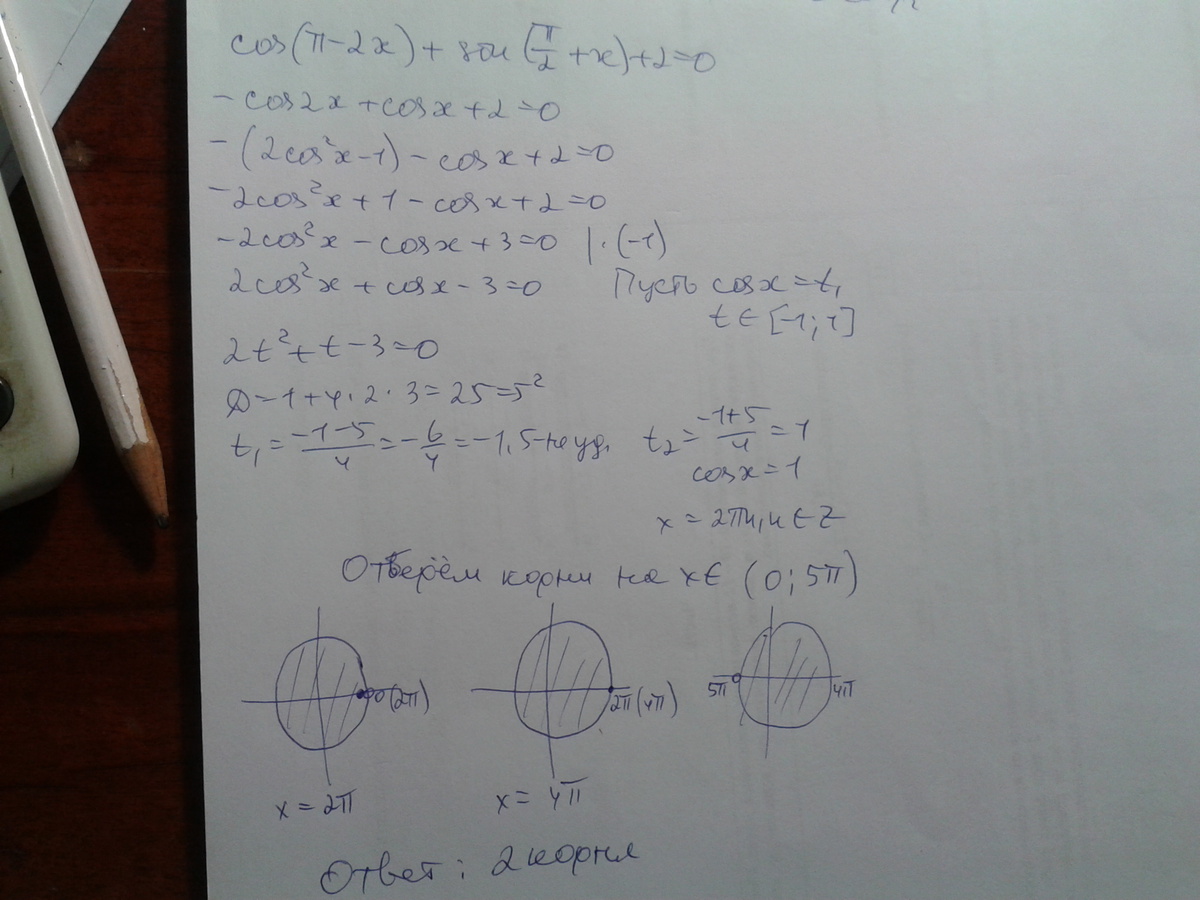 cos(π-2x) + sin(π/2 + x) + 2=0
-cos2x + cosx + 2=0
-(2cos²x-1) - cosx + 2=0
-2cos²x + 1 - cosx + 2=0
-2cos²x - cosx + 3=0 |·(-1)
2cos²x + cosx - 3=0 Пусть cosx=t,
t∈[-1;1]
2t²+t-3=0
D=1+4·2·3=25=5²
t₁=(-1-5)/4=-6/4=-1,5-не уд. t₂=(-1+5)/4=1
cosx=1
x=2πn,n∈Z
Отберём корни на x∈(0;5π)
0(2π) 2π(4π) 5π 4π
x=2π x=4π
Ответ: 2 корня